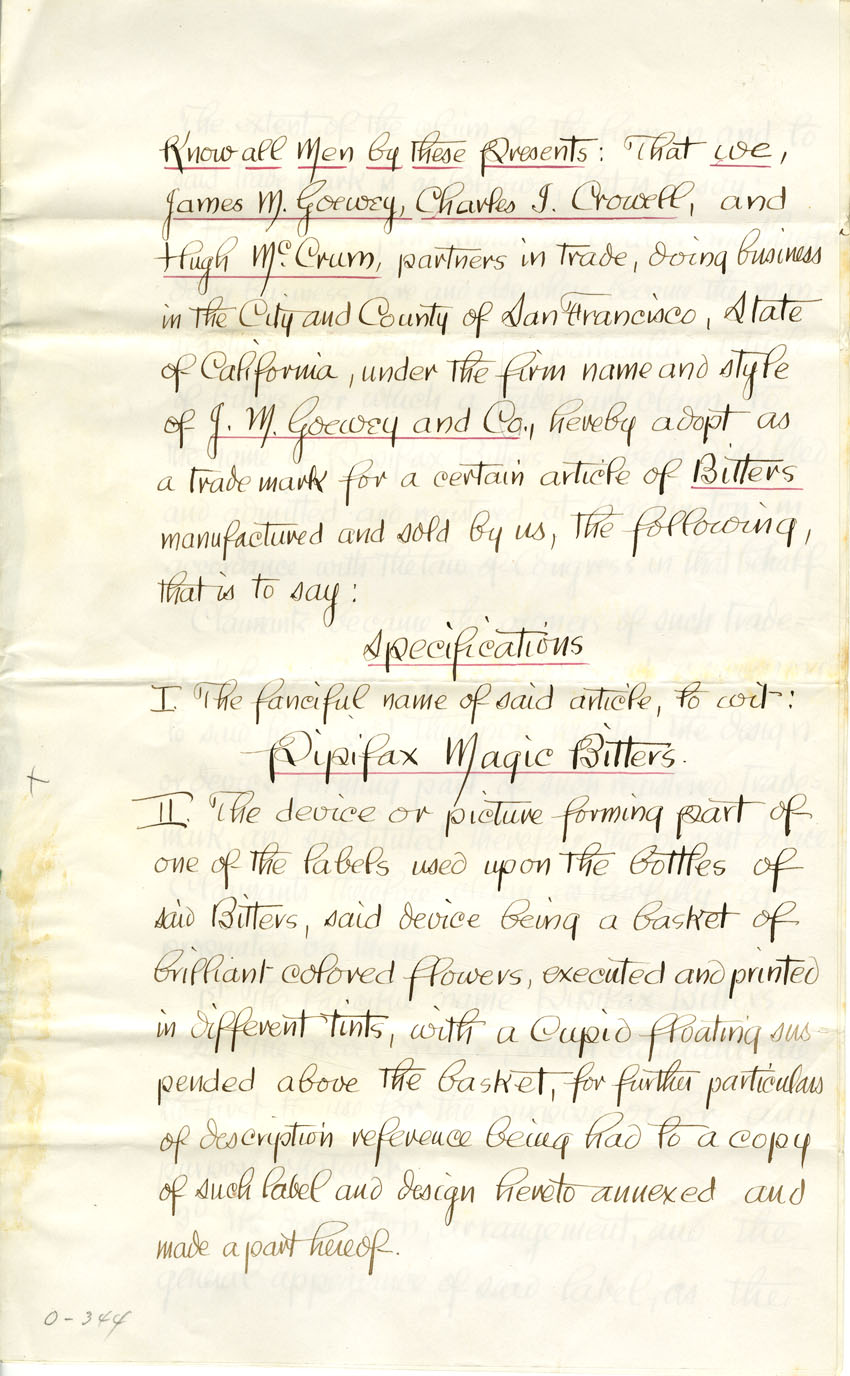 Know all Men by these Presents: That we,
James M. Goewey, Charles I. Crowell, and
Hugh McCrum, partners in trade, doing business
in the City and County of San Francisco, State
of California, under the firm name and style
of J. M. Goewey and Co., hereby adopt as
a trade mark for a certain article of Bitters
manufactured and sold by us, the following,
that is to say:
Specifications
I. The fanciful name of said article, to wit:
Pipifax Magic Bitters.
II. The device or picture forming part of
one of the labels used upon the bottles of
said Bitters, said device being a basket of
brilliant colored flowers, executed and printed
in different tints, with a Cupid floating sus-
pended above the basket, for further particulars
of description reference being had to a copy
of such label and design hereto annexed and
made a part hereof.
0-344